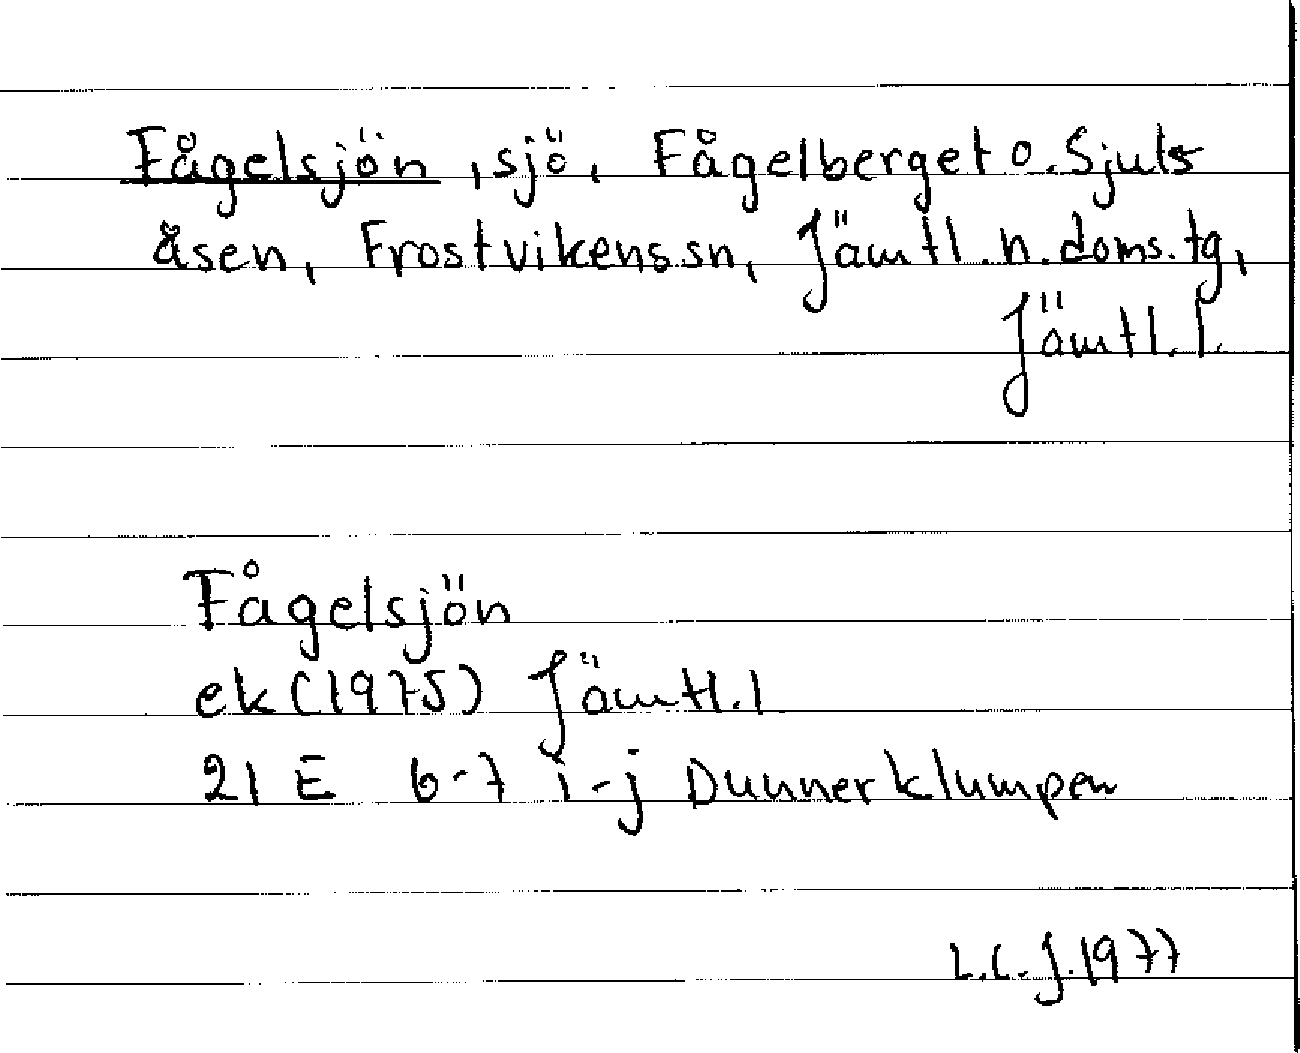 Fågelsjön, sjö, Fågelberget o. Sjuls
åsen, Frostvikens sn, Jämtl. n. doms. tg,
Jämtl. l.
Fågelsjön
ek (1975) Jämtl. l
21 E 6-7 i-j Dunnerklumpen
L.L.J. 1977